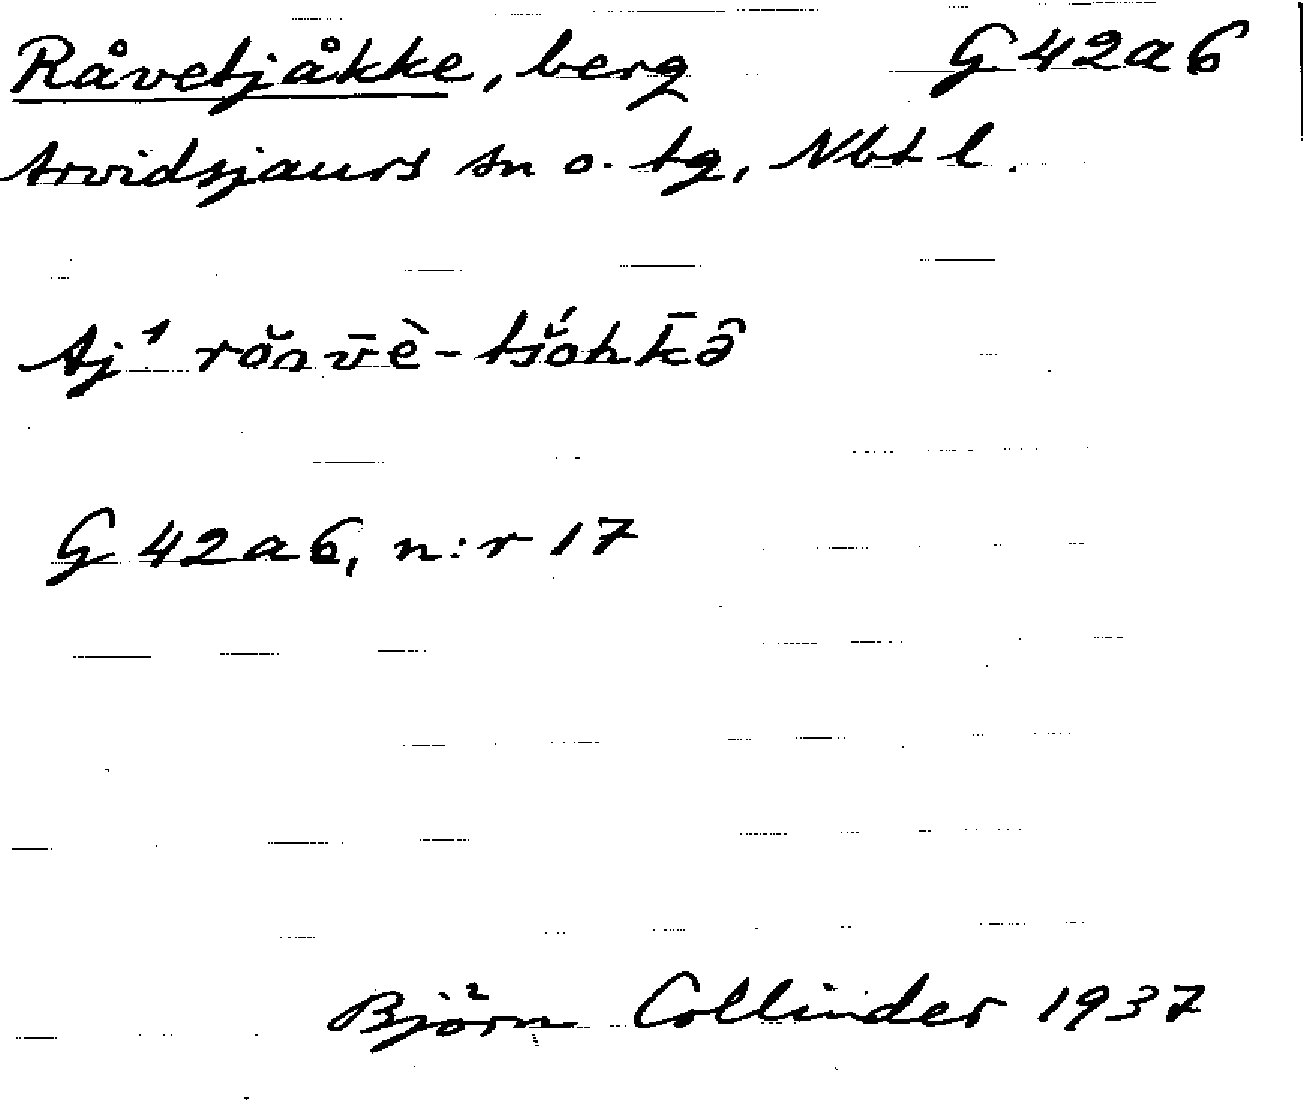 Råvetjåkke, berg G 42a6
Arvidsjaurs sn o. tg, Nbt l.
Aj¹ rŏnv̄è-tš́ŏhk̄ə̑
G 42a6, n:r 17
Björn Collinder 1937